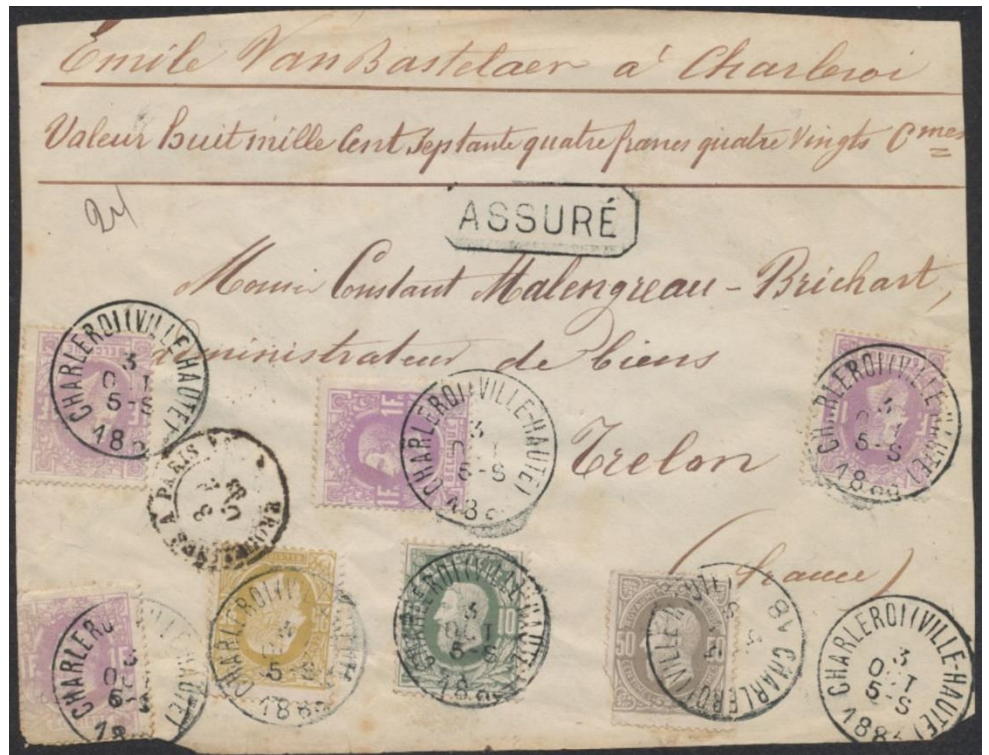 Emile VanBastelaer à Charleroi
Valeur Huit mille Cent Septante quatre francs quatre Vingts Cmes
24
ASSURÉ
Constant Malengreau-Brichart,
administrateur de biens
Trelon
(france)
CHARLEROI (VILLE-HAUTE)
3
OCT
5-S
CHARLEROI (VILLE-HAUTE)
3
5-S
1F
1F
CHARLEROI (VILLE-HAUTE)
3
5-S
A PARIS
1F
CHARLEROI (VILLE-HAUTE)
3
5-S
10
CHARLEROI (VILLE-HAUTE)
3
OCT
5-S
50
50
CHARLEROI (VILLE-HAUTE)
CHARLEROI (VILLE-HAUTE)
3
OCT
5-S